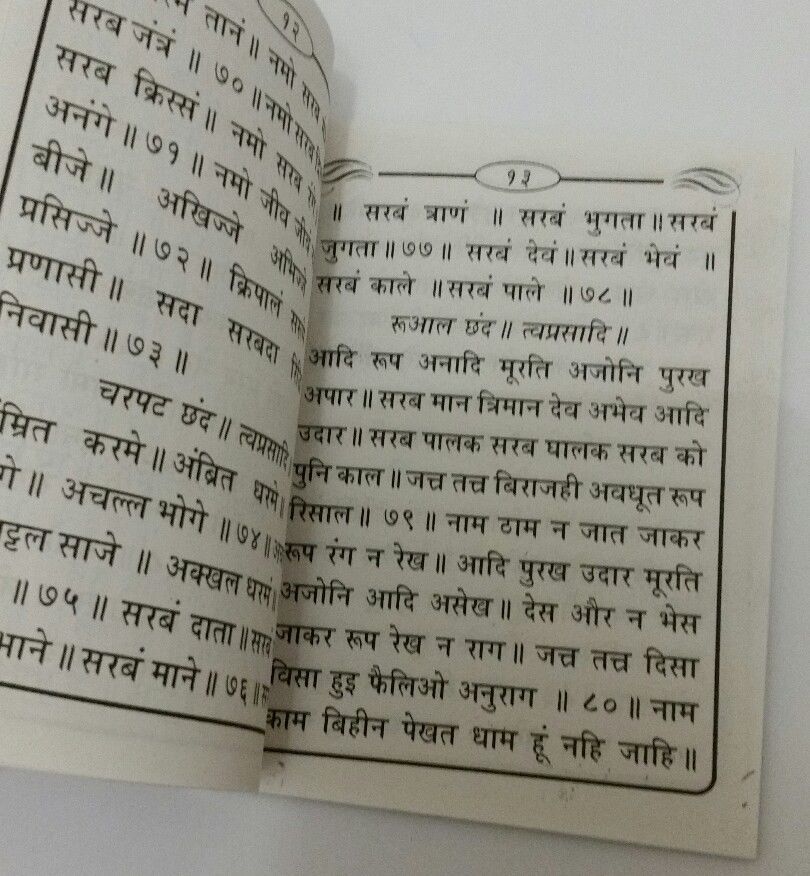 १२
तानं॥ नमो सरब
सरब जंत्रं ॥ ७०॥ नमो सरब
सरब क्रिस्सं॥ नमो सरब
अनंगे॥ ७१॥ नमो जीव जीवं
बीजे॥ अखिज्जे अभिज्जे
प्रसिज्जे ॥ ७२॥ क्रिपालं
प्रणासी॥ सदा सरबदा
निवासी॥ ७३॥
चरपट छंद॥ त्वप्रसादि॥
करमे॥ अंब्रित धरमे॥
अचल्ल भोगे ॥ ७४॥
साजे ॥ अक्खल धरमं
॥ ७५॥ सरबं दाता॥
॥ सरबं माने॥ ७६॥
१३
॥ सरबं त्राणं ॥ सरबं भुगता॥ सरबं
जुगता॥ ७७॥ सरबं देवं॥ सरबं भेवं ॥
सरबं काले ॥ सरबं पाले ॥ ७८॥
रूआल छंद॥ त्वप्रसादि॥
आदि रूप अनादि मूरति अजोनि पुरख
अपार॥ सरब मान त्रिमान देव अभेव आदि
उदार॥ सरब पालक सरब घालक सरब को
पुनि काल॥ जत्त्र तत्त्र बिराजही अवधूत रूप
रिसाल॥ ७९॥ नाम ठाम न जात जाकर
रूप रंग न रेख॥ आदि पुरख उदार मूरति
अजोनि आदि असेख॥ देस और न भेस
जाकर रूप रेख न राग॥ जत्त्र तत्त्र दिसा
विसा हुइ फैलिओ अनुराग ॥ ८०॥ नाम
काम बिहीन पेखत धाम हूं नहि जाहि॥